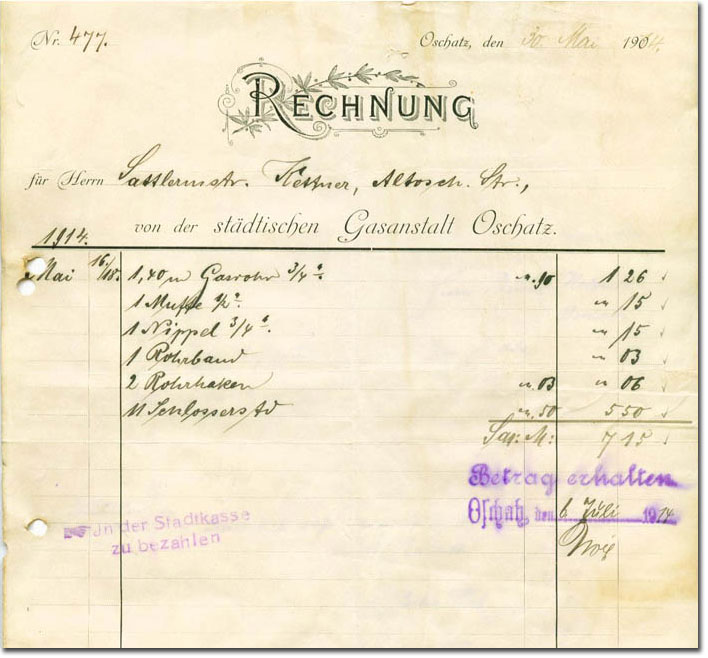 Nr. 477. Oschatz, den 30. Mai 1904.
RECHNUNG
für Herrn Sattlermstr. Kettner, Altosch. Str.,
von der städtischen Gasanstalt Oschatz.
1914.
Mai 16./18. 1,40 m Gasrohr 3/4". " 90 1 26
1 Muffe 1/2". " 15
1 Nippel 3/4". " 15
1 Rohrband " 03
2 Rohrhaken " 03 " 06
11 Schlosserstd " 50 5 50
Sa: M: 7 15
Betrag erhalten
Oschatz, den 6. Juli 1914
In der Stadtkasse
zu bezahlen